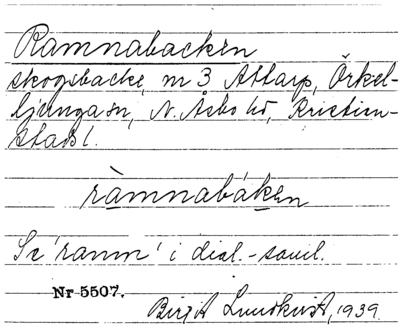 Ramnabacken
skogsbacke, m 3 Attarp, Örkel-
ljunga sn, N. Åsbo hd, Kristian-
stads l.
ràmnabáken
Se 'ramn' i dial.-saml.
Nr 5507.
Birgit Lundkvist, 1939.